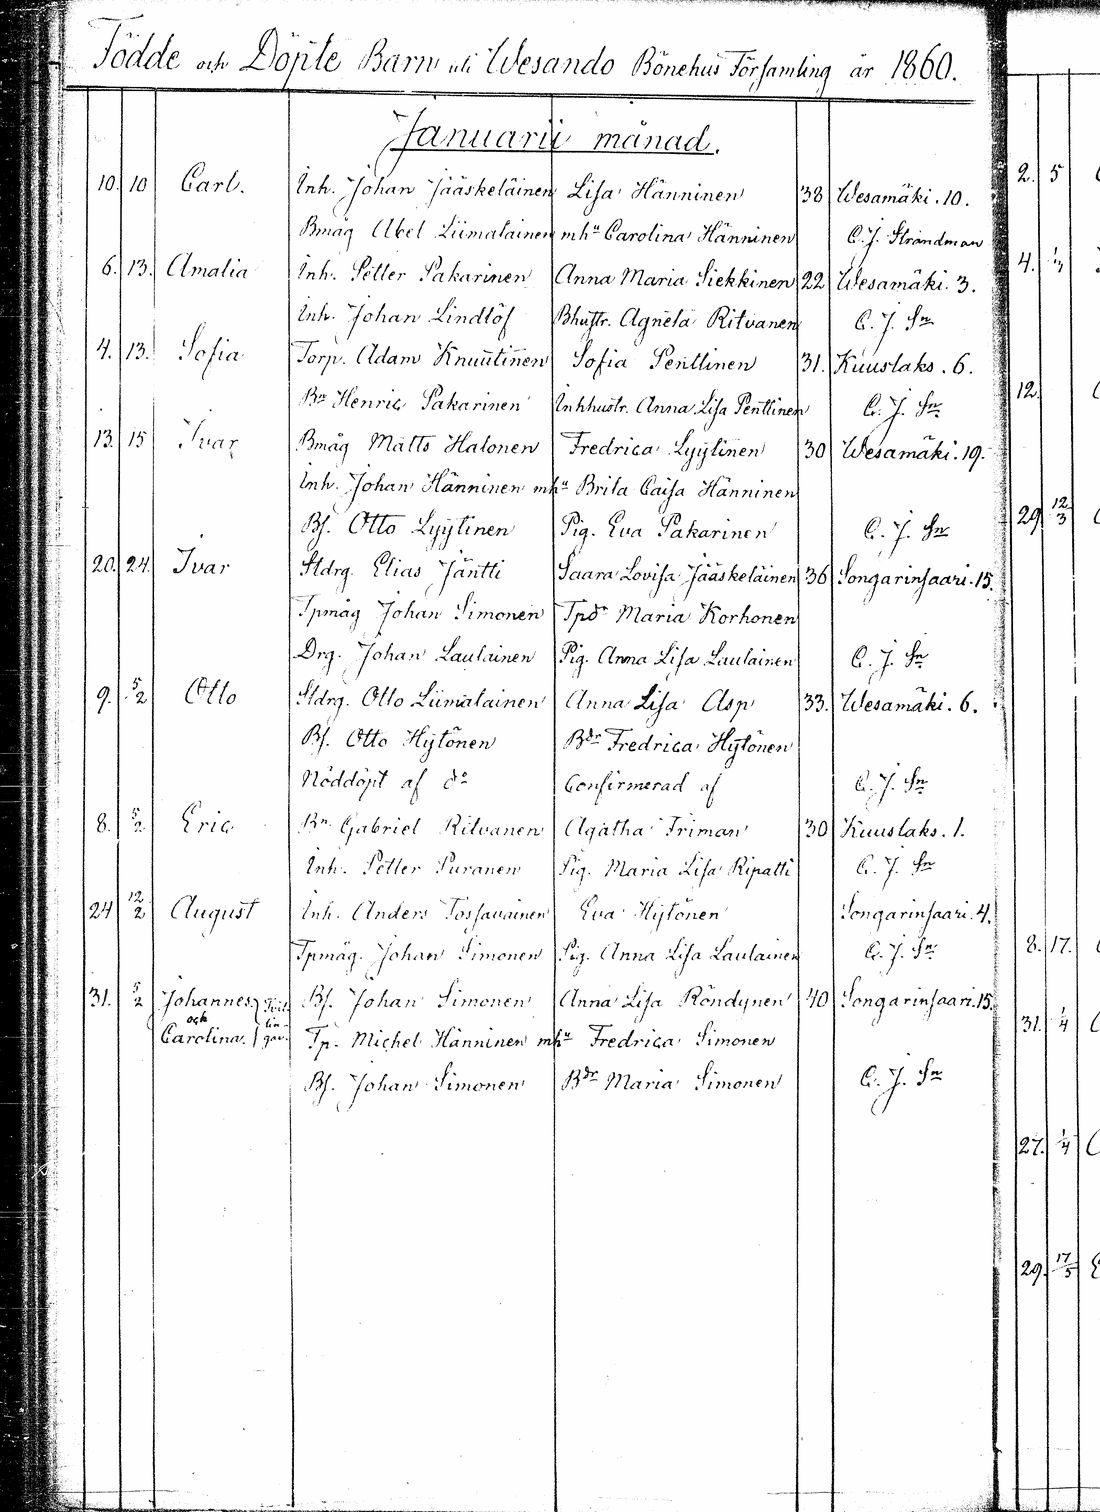 Födde och Döpte Barn uti Wesando Bönehus Församling år 1860.
Januarii månad.
10. 10 Carl. Inh. Johan Jääskeläinen Lisa Hänninen 38 Wesamäki. 10.
Bmåg Abel Liimatainen mhu Carolina Hänninen C. J. Strandman
6. 13. Amalia Inh. Petter Pakarinen Anna Maria Siekkinen 22 Wesamäki. 3.
Inh. Johan Lindlöf Bhustr. Agneta Ritvanen C. J. Sn
4. 13. Sofia Torp. Adam Knuutinen Sofia Penttinen 31. Kuuslaks. 6.
Bn Henric Pakarinen Inhhustr. Anna Lisa Penttinen C. J. Sn
13. 15 Ivar Bmåg Matts Halonen Fredrica Lyytinen 30 Wesamäki. 19.
Inh. Johan Hänninen mhu Brita Caisa Hänninen
Bs. Otto Lyytinen Pig. Eva Pakarinen C. J. Sn
20. 24. Ivar Stdrg. Elias Jäntti Saara Lovisa Jääskeläinen 36 Songarinsaari. 15.
Tpmåg Johan Simonen Tpdr Maria Korhonen
Drg. Johan Laulainen Pig. Anna Lisa Laulainen C. J. Sn
9. 5/2 Otto Stdrg. Otto Liimatainen Anna Lisa Asp 33. Wesamäki. 6.
Bs. Otto Hytönen Bdr Fredrica Hytönen
Nöddöpt af do Confirmerad af C. J. Sn
8. 5/2 Eric Bn. Gabriel Ritvanen Agatha Friman 30 Kuuslaks. 1.
Inh. Petter Puranen Pig. Maria Lisa Ripatti C. J. Sn
24 12/2 August Inh. Anders Tossavainen Eva Hytönen Songarinsaari. 4.
Tpmåg. Johan Simonen Pig. Anna Lisa Laulainen C. J. Sn
31. 5/2 Johannes och Carolina. Tvillingar Bs. Johan Simonen Anna Lisa Röndynen 40 Songarinsaari. 15.
Tp. Michel Hänninen mhu Fredrica Simonen
Bs. Johan Simonen Bdr Maria Simonen C. J. Sn
2. 5
4.
12.
29 12/3
8. 17.
31. 1/4
27. 1/4
29. 17/5